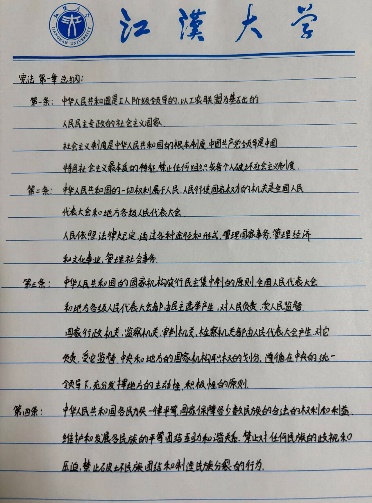 江漢大学
宪法 第一章 总纲:
第一条: 中华人民共和国是工人阶级领导的,以工农联盟为基础的
人民民主专政的社会主义国家
社会主义制度是中华人民共和国的根本制度.中国共产党领导是中国
特色社会主义最本质的特征.禁止任何组织或者个人破坏社会主义制度.
第二条: 中华人民共和国的一切权利属于人民.人民行使国家权力的机关是全国人民
代表大会和地方各级人民代表大会
人民依照法律规定,通过各种途径和形式,管理国家事务,管理经济
和文化事业,管理社会事务
第三条: 中华人民共和国的国家机构实行民主集中制的原则.全国人民代表大会
和地方各级人民代表大会都由民主选举产生,对人民负责,受人民监督.
国家行政机关,监察机关,审判机关,检察机关都由人民代表大会产生,对它
负责,受它监督.中央和地方的国家机构职权的划分,遵循在中央的统一
领导下,充分发挥地方的主动性,积极性的原则.
第四条: 中华人民共和国各民族一律平等.国家保障各少数民族的合法的权利和利益.
维护和发展各民族的平等团结互助和谐关系.禁止对任何民族的歧视和
压迫,禁止破坏民族团结和制造民族分裂的行为.